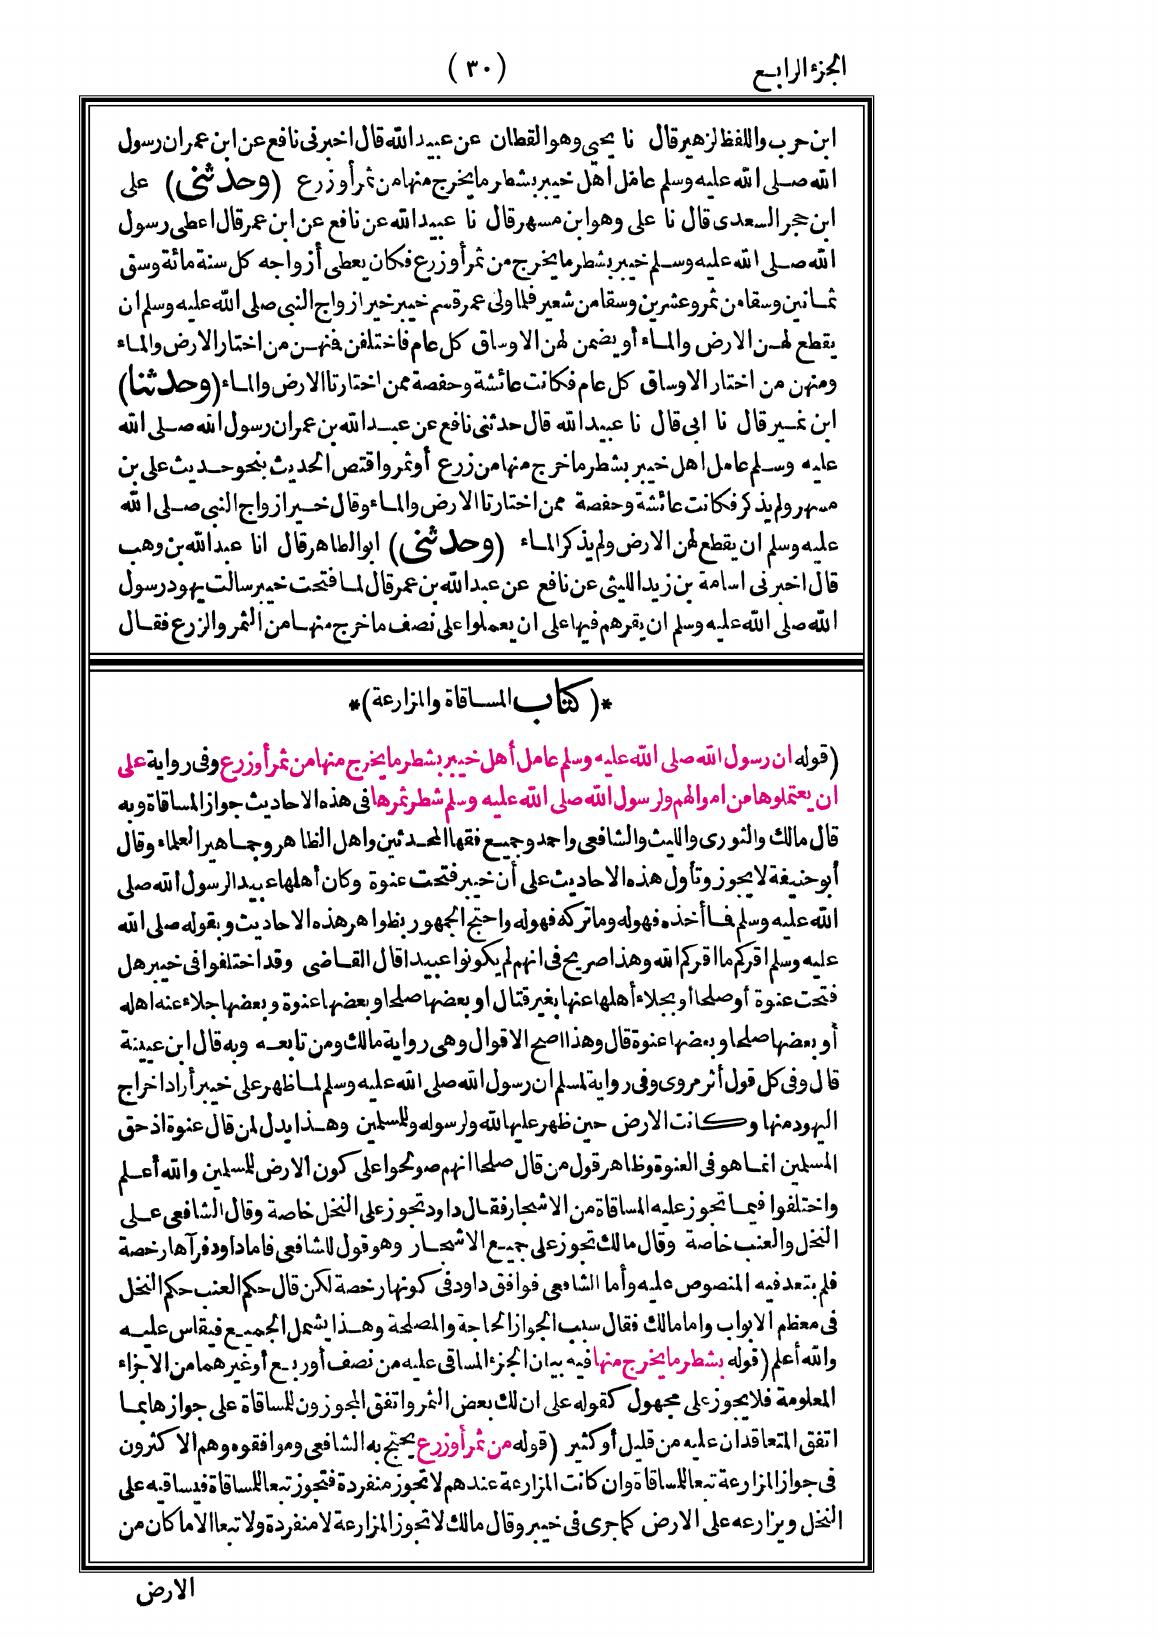 الجزء الرابع
(٣٠)
ابن حرب واللفظ لزهير قال نا يحيى وهو القطان عن عبيد الله قال اخبرنى نافع عن ابن عمر ان رسول
الله صلى الله عليه وسلم عامل أهل خيبر بشطر ما يخرج منها من ثمر أو زرع (وحدثنى) على
ابن حجر السعدى قال نا على وهو ابن مسهر قال نا عبيد الله عن نافع عن ابن عمر قال اعطى رسول
الله صلى الله عليه وسلم خيبر بشطر ما يخرج من ثمر أو زرع فكان يعطى أزواجه كل سنة مائة وسق
ثمانين وسقا من ثمر وعشرين وسقا من شعير فلما ولى عمر قسم خيبر خير ازواج النبى صلى الله عليه وسلم ان
يقطع لهن الارض والماء أو يضمن لهن الاوساق كل عام فاختلفن فنهن من اختار الارض والماء
ومنهن من اختار الاوساق كل عام فكانت عائشة وحفصة ممن اختارتا الارض والماء (وحدثنا)
ابن نمير قال نا ابى قال نا عبيد الله قال حدثنى نافع عن عبد الله بن عمر ان رسول الله صلى الله
عليه وسلم عامل اهل خيبر بشطر ما خرج منها من زرع أو ثمر واقتص الحديث بنحو حديث على بن
مسهر ولم يذكر فكانت عائشة وحفصة ممن اختارتا الارض والماء وقال خير ازواج النبى صلى الله
عليه وسلم ان يقطع لهن الارض ولم يذكر الماء (وحدثنى) ابو الطاهر قال انا عبد الله بن وهب
قال اخبرنى اسامة بن زيد الليثى عن نافع عن عبد الله بن عمر قال لما فتحت خيبر سالت يهود رسول
الله صلى الله عليه وسلم ان يقرهم فيها على ان يعملوا على نصف ما خرج منها من الثمر والزرع فقال
*(كتاب المساقاة والمزارعة)*
(قوله ان رسول الله صلى الله عليه وسلم عامل أهل خيبر بشطر ما يخرج منها من ثمر أو زرع وفى رواية على
ان يعتملوها من اموالهم ولرسول الله صلى الله عليه وسلم شطر ثمرها فى هذه الاحاديث جواز المساقاة وبه
قال مالك والثورى والليث والشافعى واحمد وجميع فقهاء المحدثين واهل الظاهر وجماهير العلماء وقال
أبو حنيفة لا يجوز وتأول هذه الاحاديث على أن خيبر فتحت عنوة وكان أهلها عبيد الرسول الله صلى
الله عليه وسلم فا أخذه فهو له وما تركه فهو له واحتج الجمهور بظواهر هذه الاحاديث وبقوله صلى الله
عليه وسلم اقركم ما اقركم الله وهذا صريح فى انهم لم يكونوا عبيدا قال القاضى وقد اختلفوا فى خيبر هل
فتحت عنوة أو صلحا أو بجلاء أهلها عنها بغير قتال او بعضها صلحا وبعضها عنوة وبعضها جلاء عنه اهله
أو بعضها صلحا وبعضها عنوة قال وهذا اصح الاقوال وهى رواية مالك ومن تابعه وبه قال ابن عيينة
قال وفى كل قول أثر مروى وفى رواية لمسلم ان رسول الله صلى الله عليه وسلم لما ظهر على خيبر أراد اخراج
اليهود منها وكانت الارض حين ظهر عليها لله ولرسوله وللمسلمين وهذا يدل لمن قال عنوة اذ حق
المسلمين انما هو فى العنوة وظاهر قول من قال صلحا انهم صولحوا على كون الارض للمسلمين والله أعلم
واختلفوا فيما تجوز عليه المساقاة من الاشجار فقال داود تجوز على النخل خاصة وقال الشافعى على
النخل والعنب خاصة وقال مالك تجوز على جميع الاشجار وهو قول للشافعى فاما داود فرآها رخصة
فلم يتعد فيه المنصوص عليه وأما الشافعى فوافق داود فى كونها رخصة لكن قال حكم العنب حكم النخل
فى معظم الابواب واما مالك فقال سبب الجواز الحاجة والمصلحة وهذا يشمل الجميع فيقاس عليه
والله أعلم (قوله بشطر ما يخرج منها فيه بيان الجزء المساقى عليه من نصف أو ربع أو غيرهما من الاجزاء
المعلومة فلا يجوز على مجهول كقوله على ان لك بعض الثمر واتفق المجوزون للمساقاة على جوازها بما
اتفق المتعاقدان عليه من قليل أو كثير (قوله من ثمر أو زرع يحتج به الشافعى وموافقوه وهم الاكثرون
فى جواز المزارعة تبعا للمساقاة وان كانت المزارعة عندهم لا تجوز منفردة فتجوز تبعا للمساقاة فيساقيه على
النخل ويزارعه على الارض كما جرى فى خيبر وقال مالك لا تجوز المزارعة لا منفردة ولا تبعا الا ما كان من
الارض